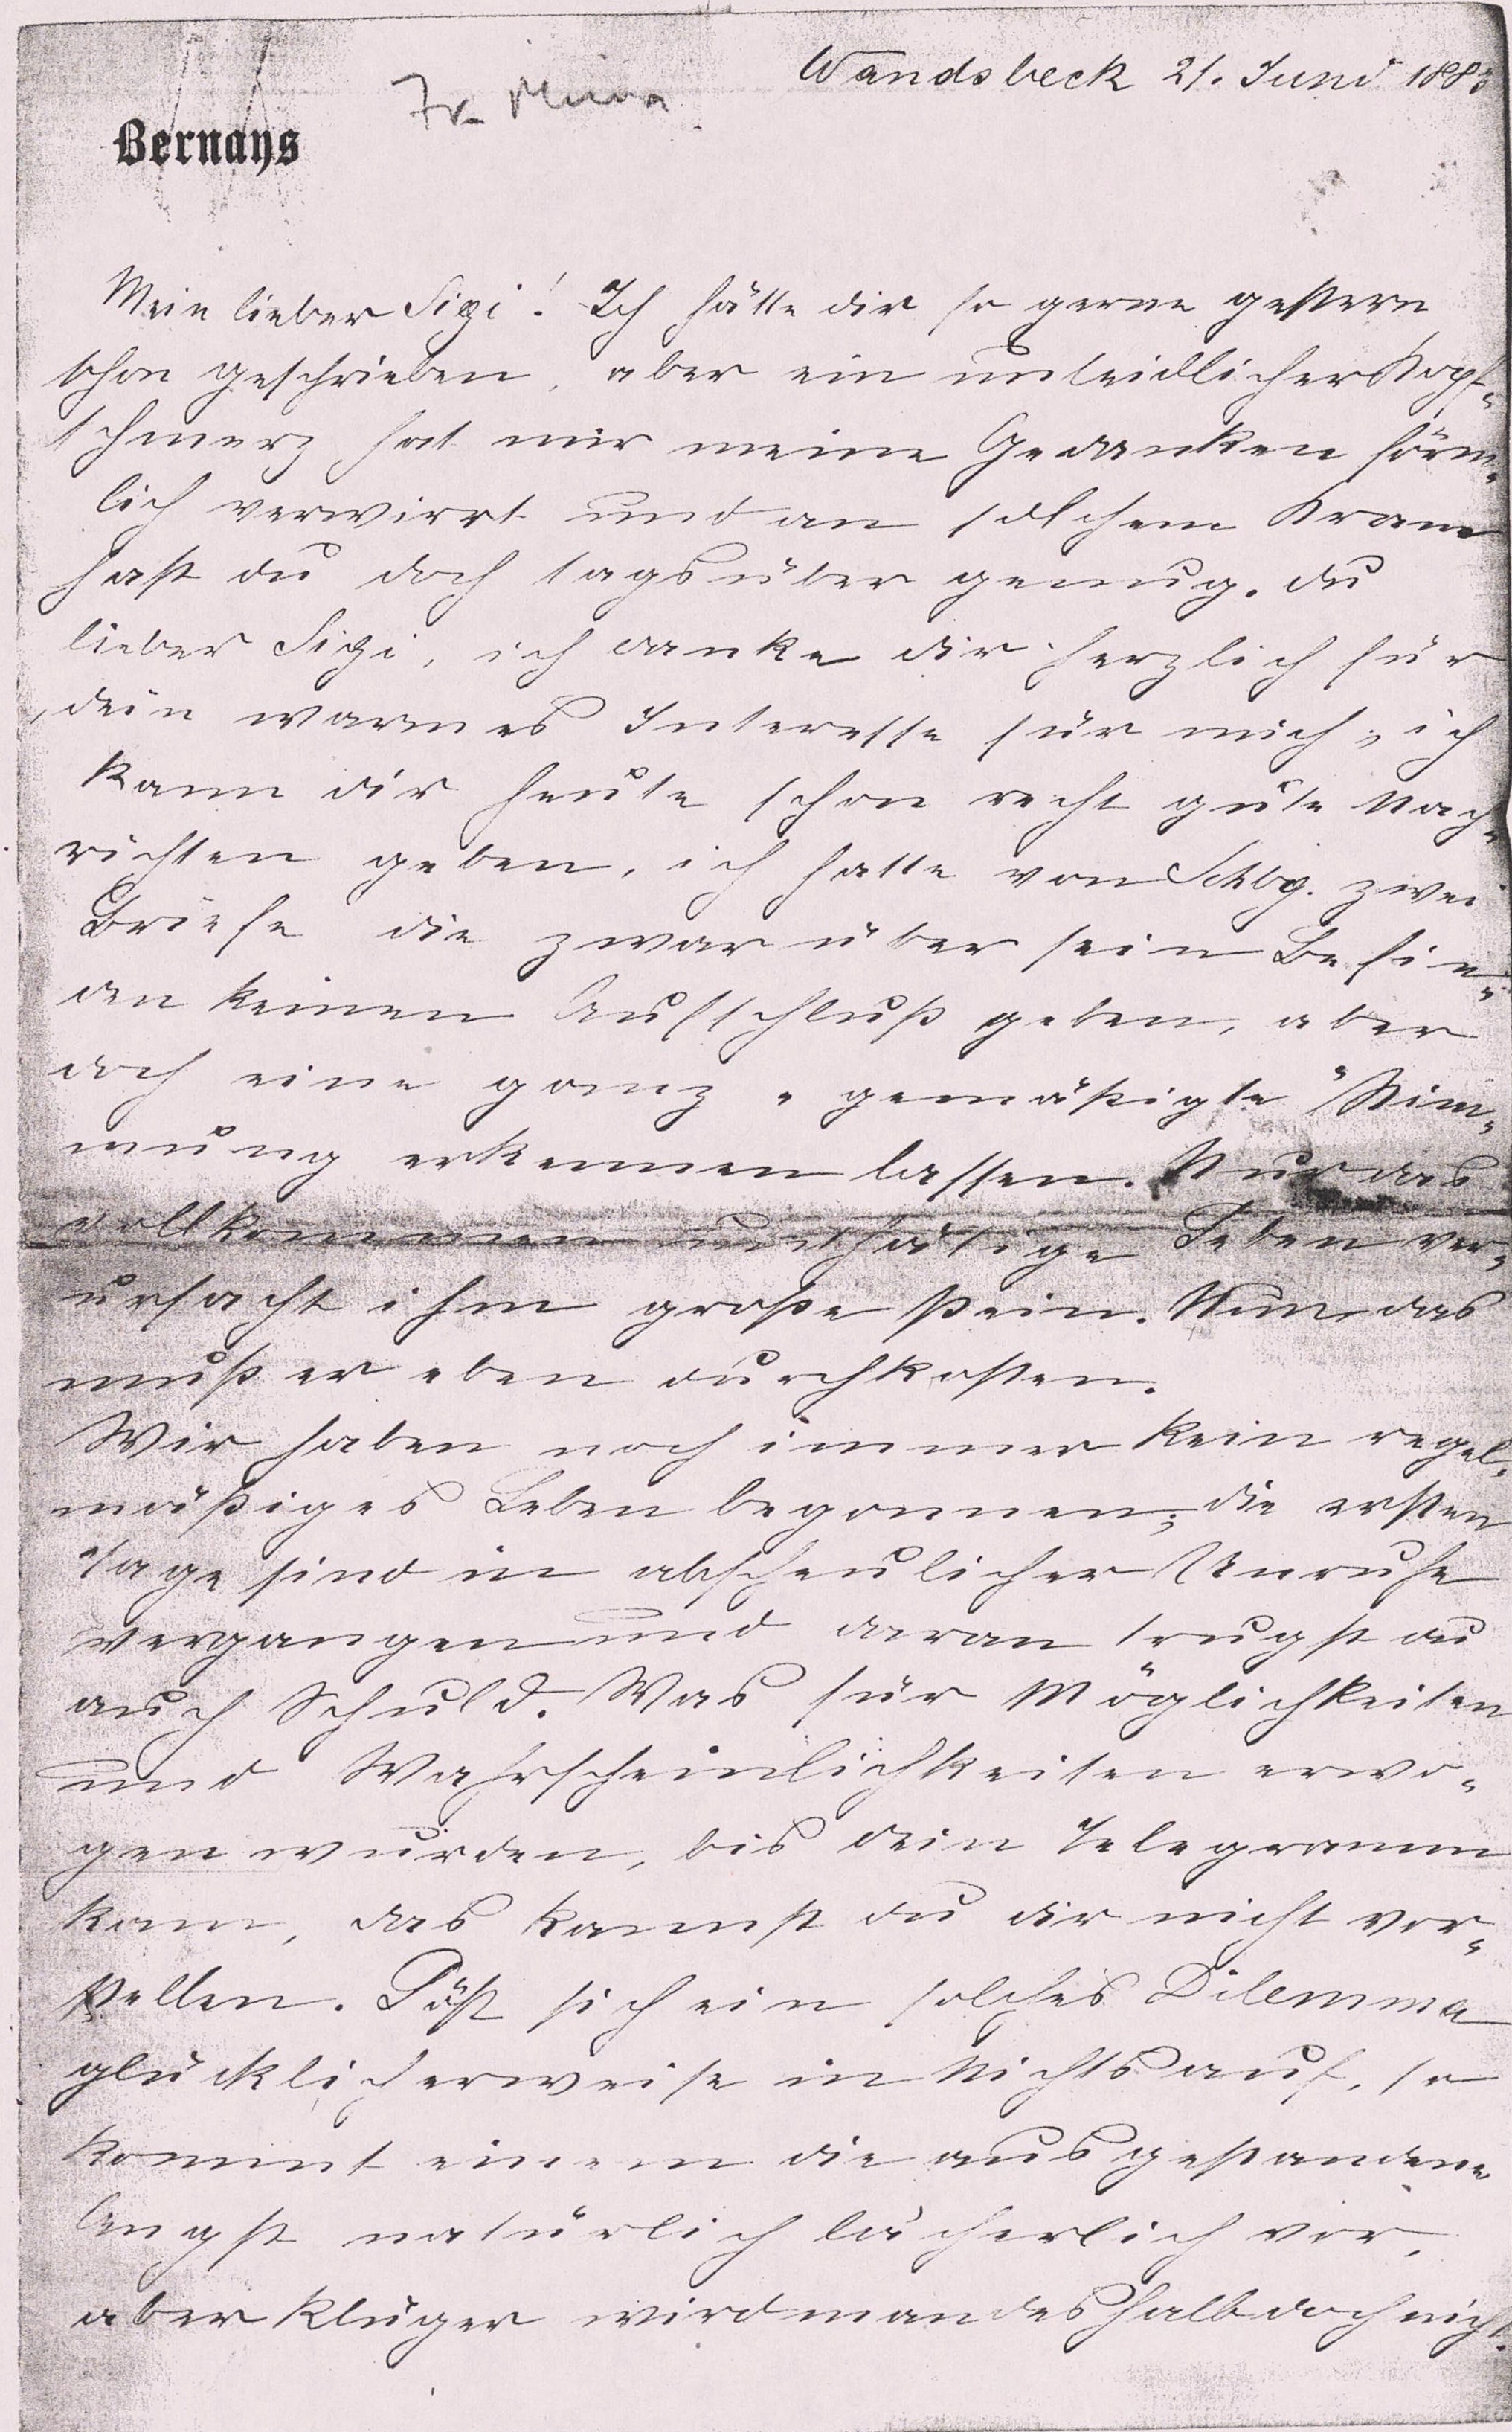 Wandsbeck 21. Juni 1883
Fr. Minna
Bernays
Mein lieber Sigi! Ich hätte dir so gerne gestern
schon geschrieben, aber ein unleidlicher Kopf-
schmerz hat mir meine Gedanken förm-
lich verwirrt und an solchem Kram
hast du doch tagsüber genug. Du
lieber Sigi, ich danke dir herzlich für
dein warmes Interesse für mich; ich
kann dir heute schon recht gute Nach-
richten geben, ich hatte von Schbg. zwei
Briefe die zwar über sein Befin-
den keinen Aufschluß geben, aber
doch eine ganz „gemäßigte" Stim-
mung erkennen lassen. Nur das
vollkommen unthätige Leben ver-
ursacht ihm große Pein. Nun das
muß er eben durchkosten.
Wir haben noch immer kein regel-
mäßiges Leben begonnen; die ersten
Tage sind in abscheulicher Unruhe
vergangen und daran trugst du
auch Schuld. Was für Möglichkeiten
und Wahrscheinlichkeiten erwo-
gen wurden, bis dein Telegramm
kam, das kannst du dir nicht vor-
stellen. Löst sich ein solches Dilemma
glücklicherweise in Nichts auf, so
kommt einem die ausgestandene
Angst natürlich lächerlich vor,
aber klüger wird man deshalb doch nicht.